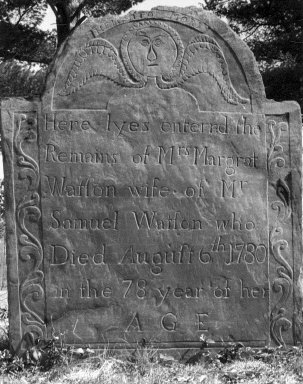 Here lyes enterrd the
Remains of Mrs Margret
Watson wife of Mr
Samuel Watson who
Died August 6th 1780
in the 78 year of her
AGE